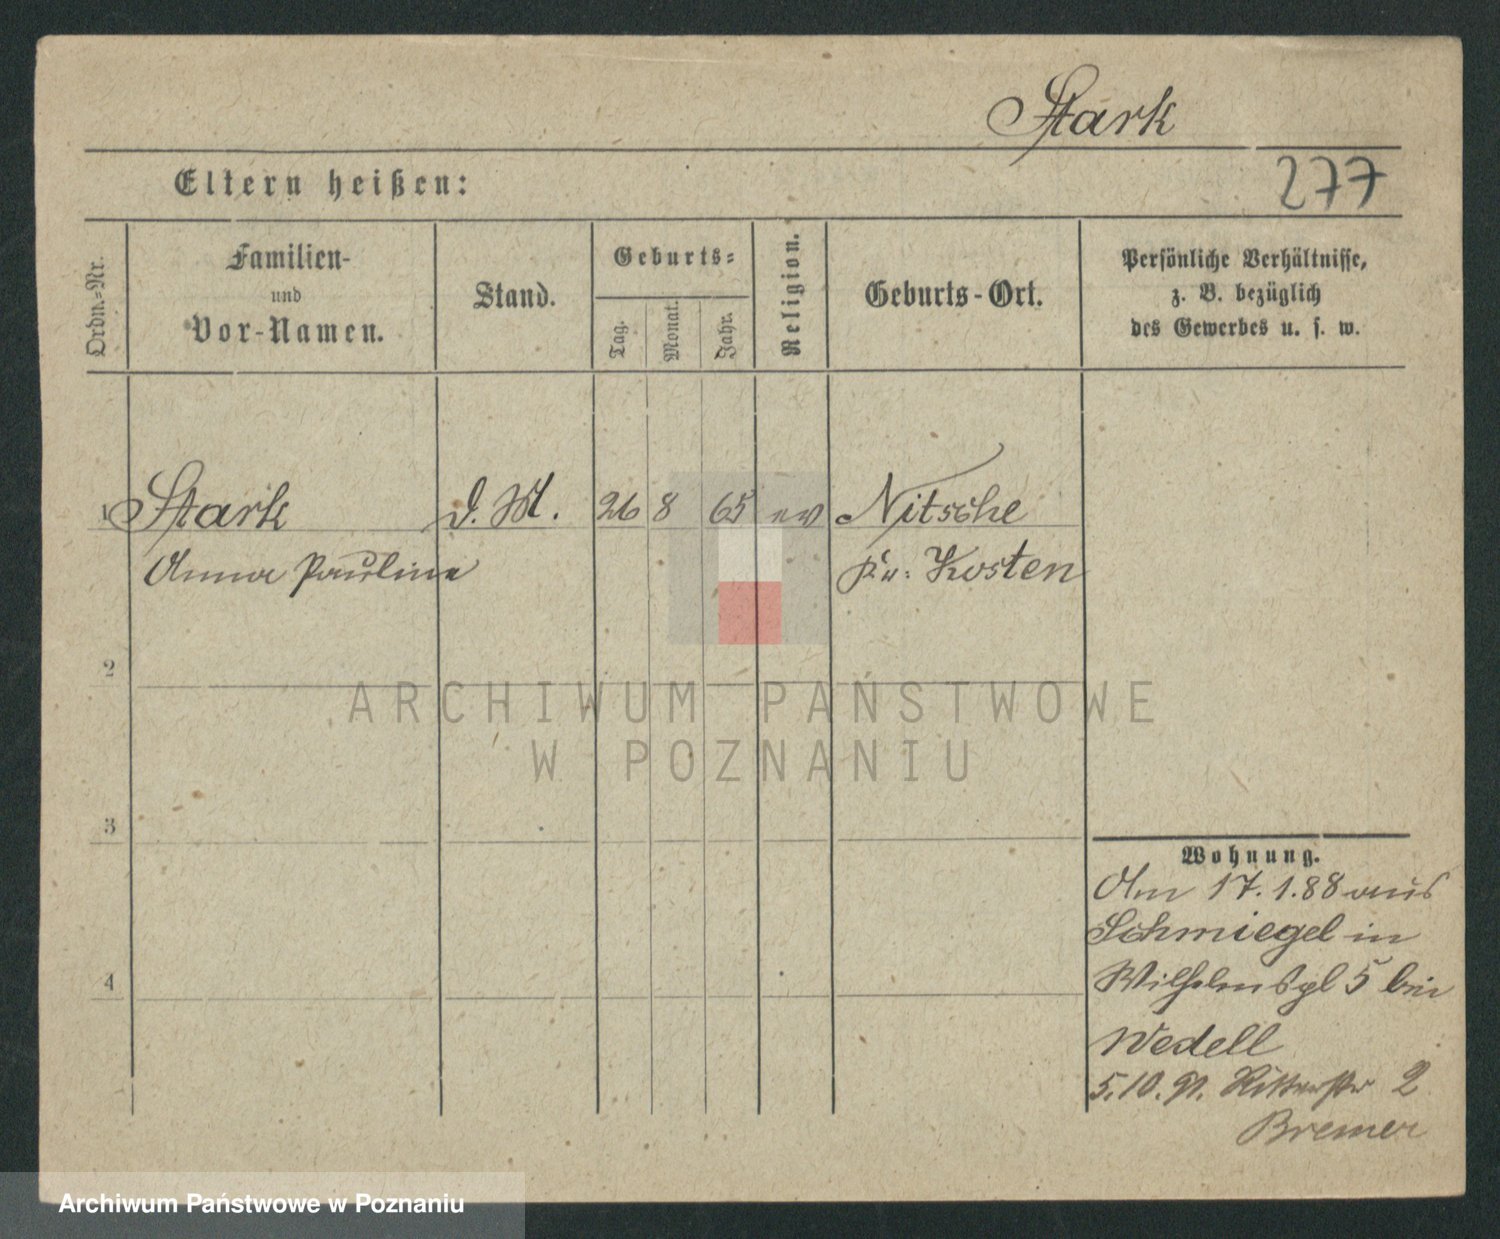 Stark
277
Eltern heißen:
Ordn.-Nr.
Familien-
und
Vor-Namen.
Stand.
Geburts-
Tag.
Monat.
Jahr.
Religion.
Geburts-Ort.
Persönliche Verhältnisse,
z. B. bezüglich
des Gewerbes u. s. w.
1 Stark D. M. 26 8 65 ev Nitsche
Anna Pauline Kr: Kosten
2
ARCHIWUM PAŃSTWOWE
W POZNANIU
3
4
Wohnung.
Am 17.1.88 aus
Schmiegel in
Wilhelmspl 5 bei
Wedell
5.10.91. Ritterstr 2
Bremer
Archiwum Państwowe w Poznaniu